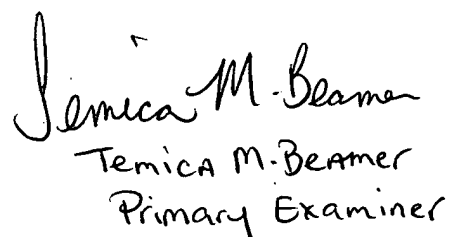 Temica M. Beamer
Temica M. Beamer
Primary Examiner